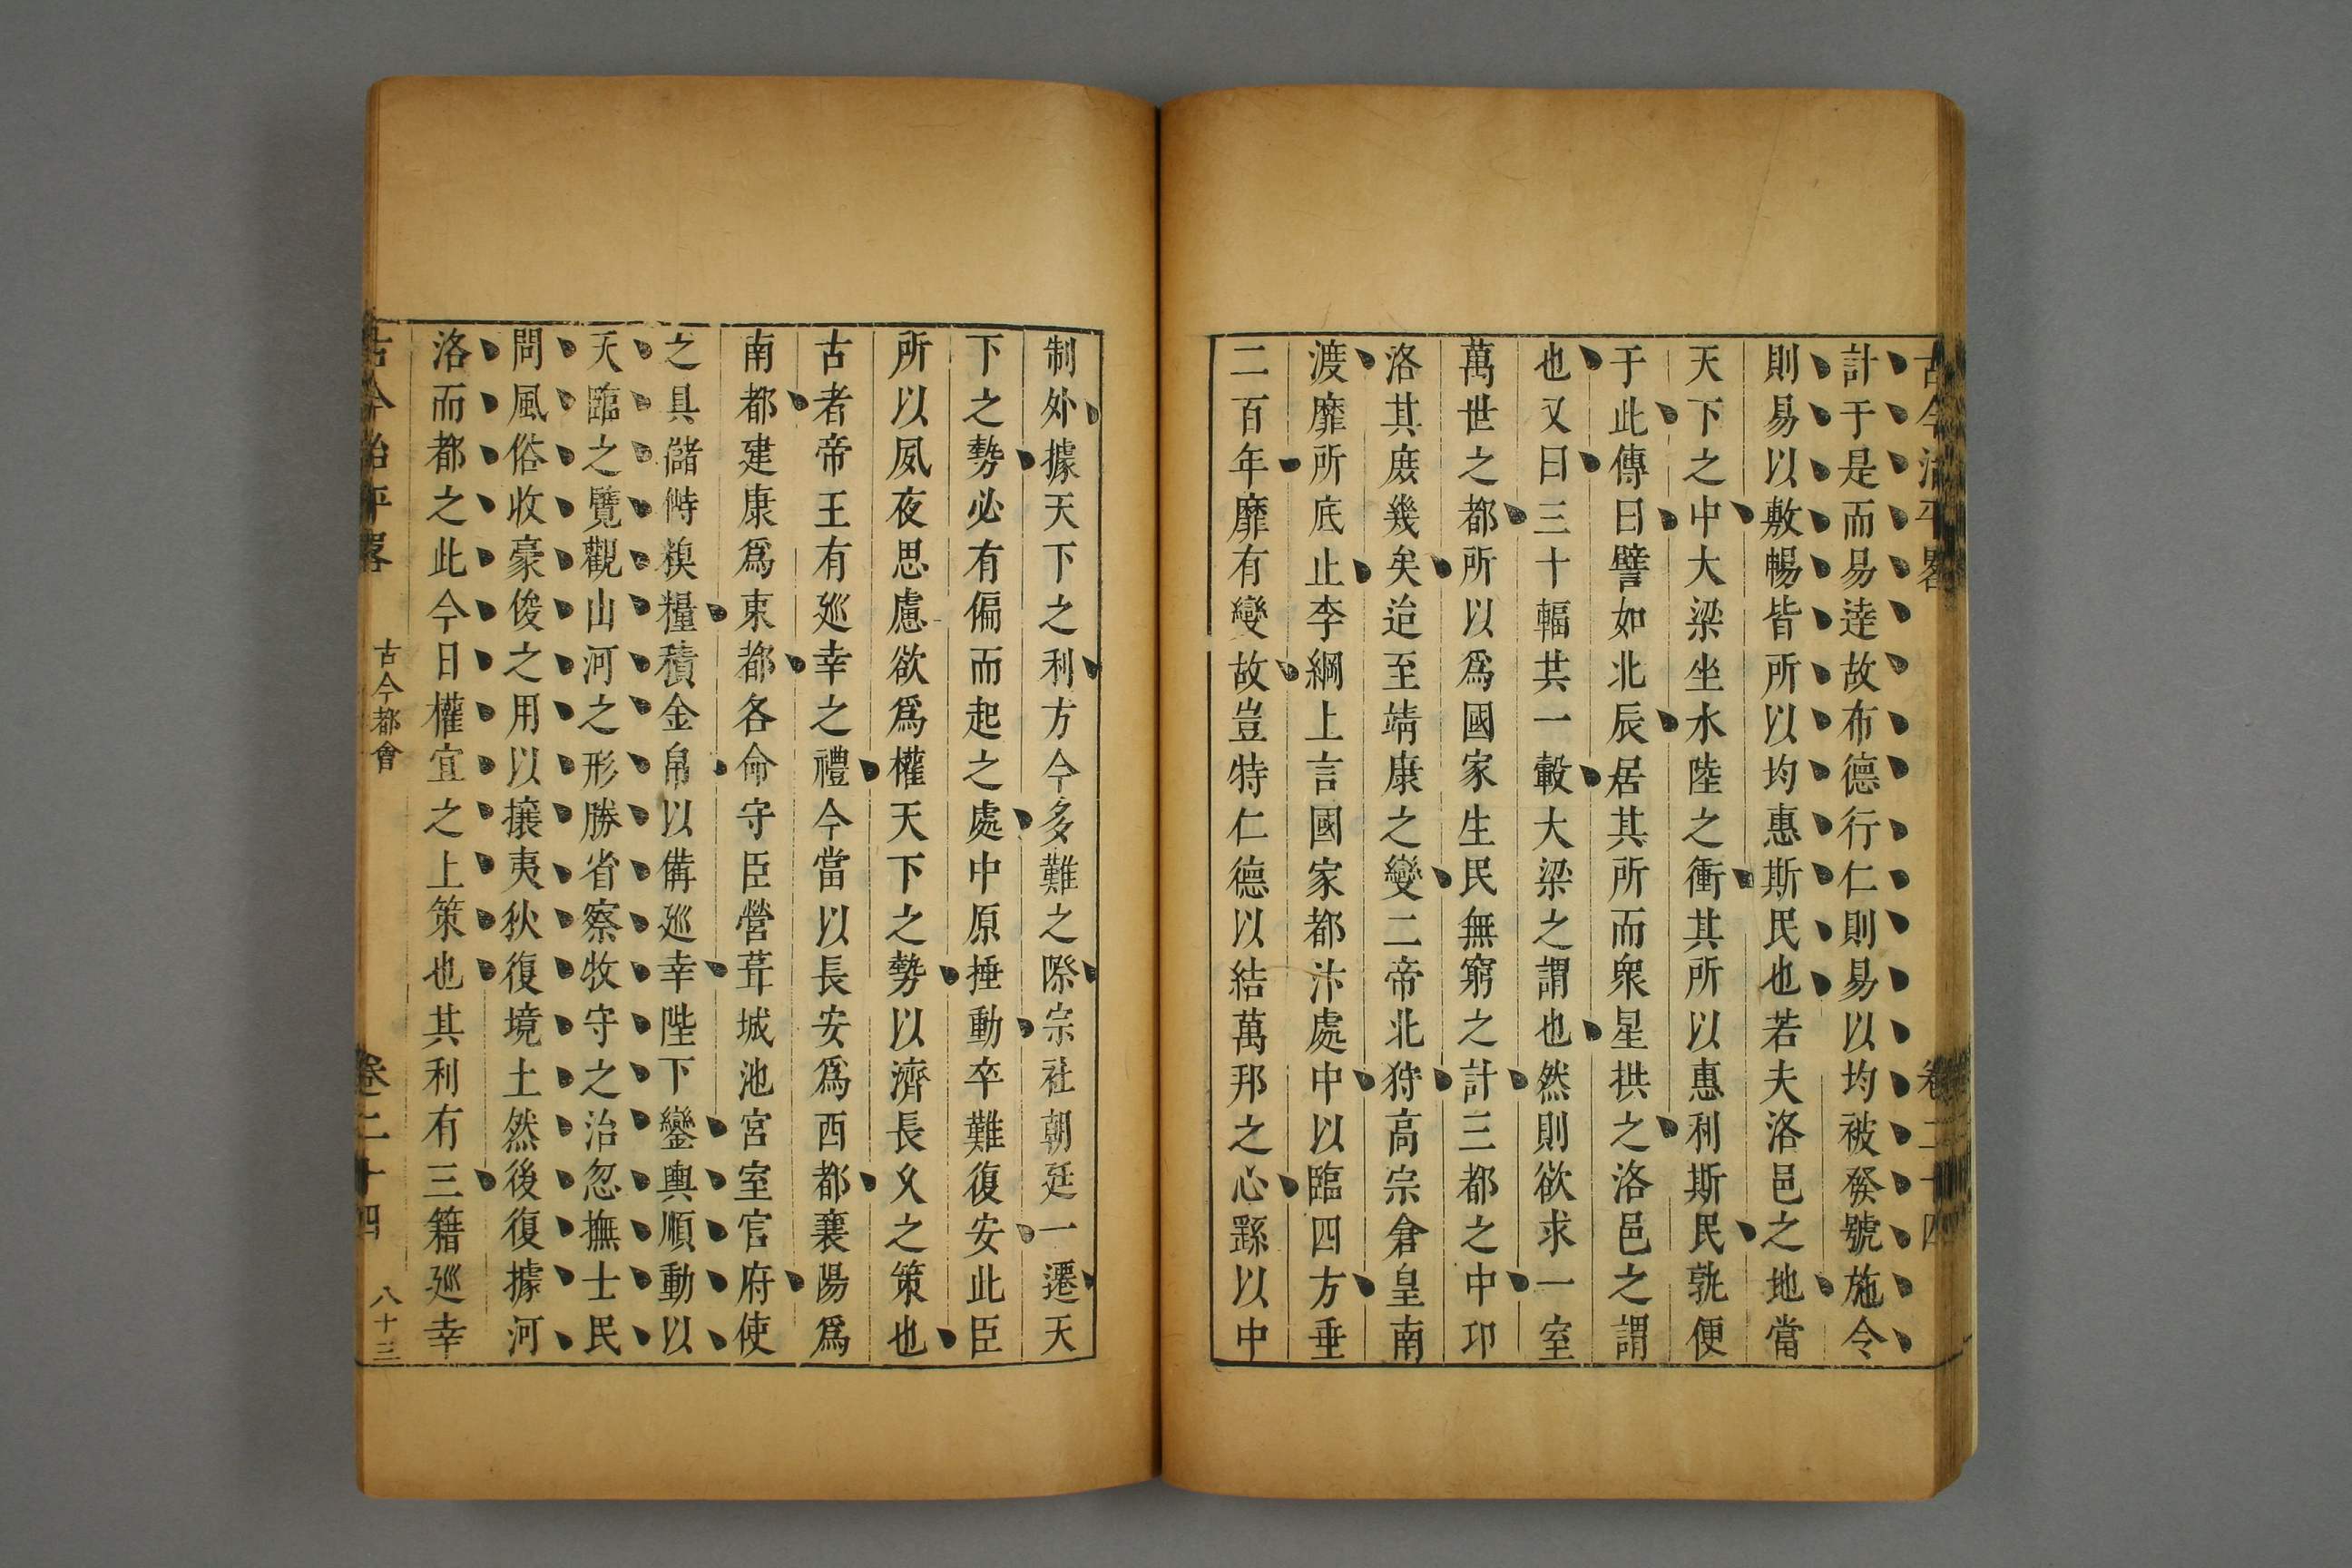 古今治平畧
卷二十四
計于是而易達故布德行仁則易以均被發號施令
則易以敷暢皆所以均惠斯民也若夫洛邑之地當
天下之中大梁坐水陸之衝其所以惠利斯民孰便
于此傳曰譬如北辰居其所而衆星拱之洛邑之謂
也又曰三十輻共一轂大梁之謂也然則欲求一室
萬世之都所以爲國家生民無窮之計三都之中卬
洛其庻幾矣迨至靖康之變二帝北狩高宗倉皇南
渡靡所底止李綱上言國家都汴處中以臨四方垂
二百年靡有變故豈特仁德以結萬邦之心繇以中
制外據天下之利方今多難之際宗社朝廷一遷天
下之勢必有偏而起之處中原捶動卒難復安此臣
所以夙夜思慮欲爲權天下之勢以濟長乆之策也
古者帝王有廵幸之禮今當以長安爲西都襄陽爲
南都建康爲東都各命守臣營葺城池宮室官府使
之具儲偫糗糧積金帛以備廵幸陛下鑾輿順動以
天臨之覽觀山河之形勝省察牧守之治忽撫士民
問風俗收豪俊之用以攘夷狄復境土然後復據河
洛而都之此今日權宜之上策也其利有三籍廵幸
古今治平畧
古今都會
卷二十四
八十三